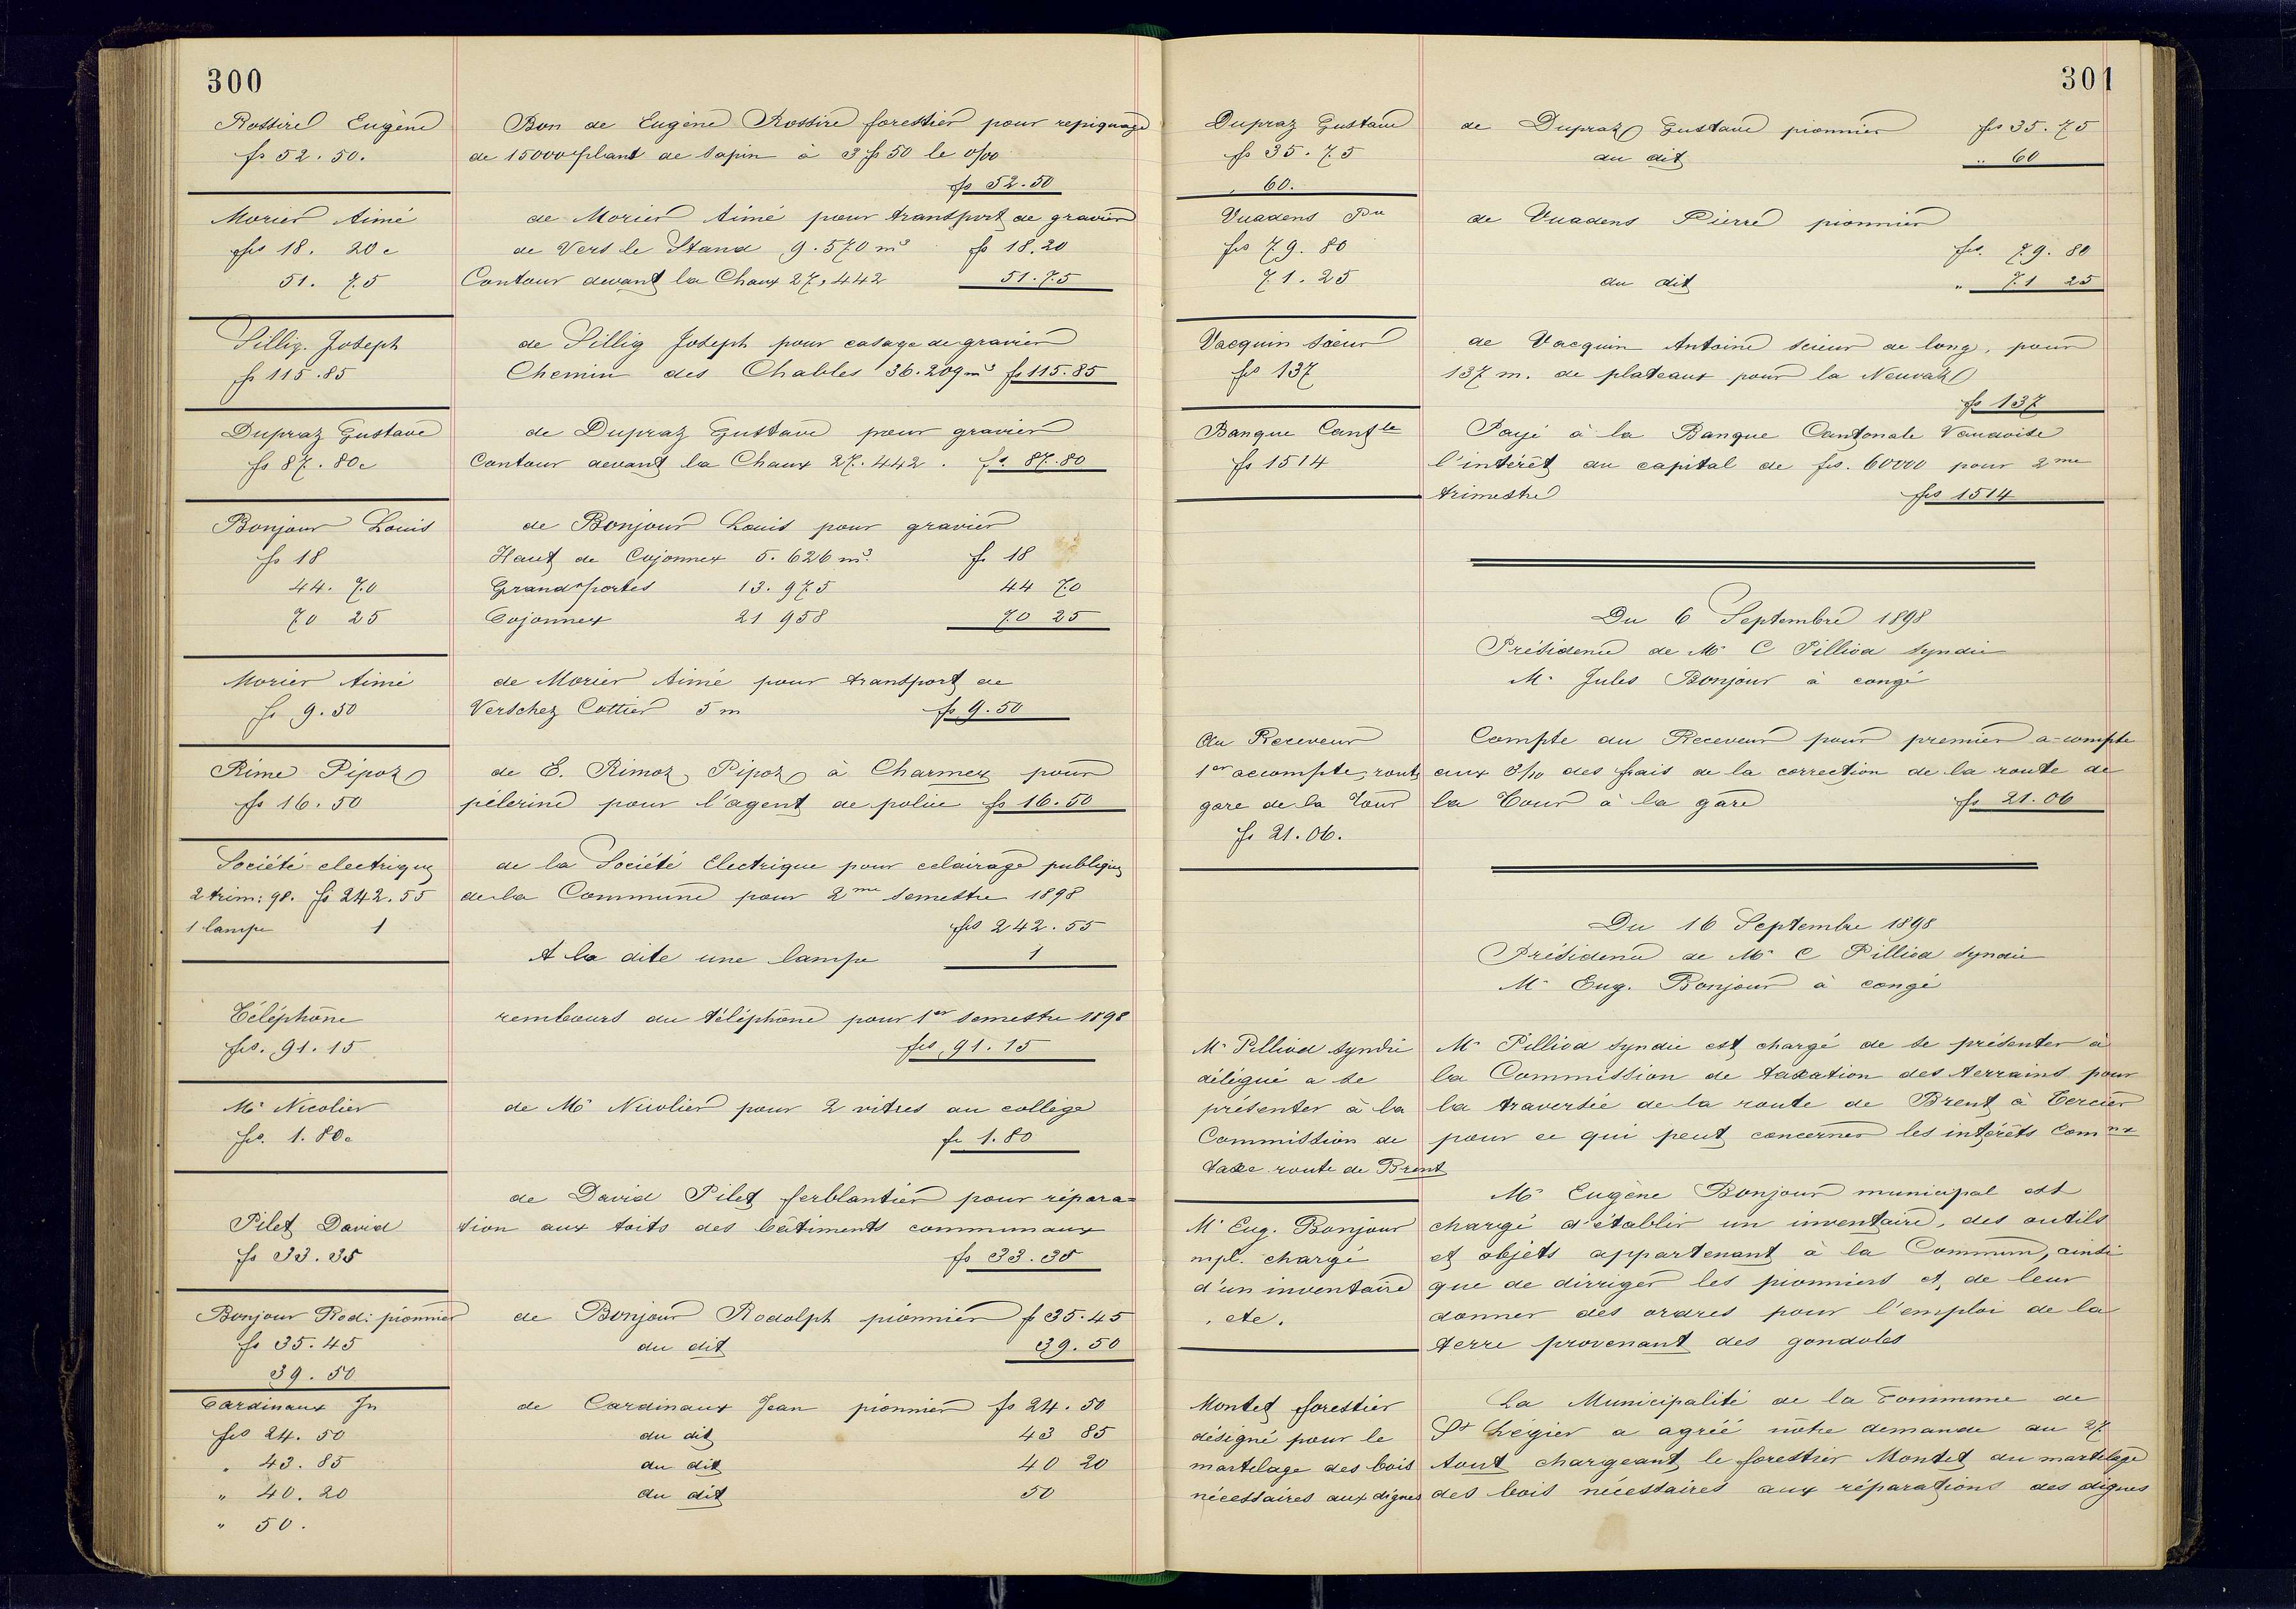 300
Rossire Eugène
fs 52.50.
Bon de Eugène Rossire forestier pour repiquage
de 15000 plant de sapin à 3 fs 50 le 0/00
fs 52.50
Morier Aimé
frs 18. 20 c
51. 75
de Morier Aimé pour transport de gravier
de Vers le Stand 9.570 m³ fs 18.20
Contour devant la Chaux 27,442 51.75
Sillig Joseph
fs 115.85
de Sillig Joseph pour casage de gravier
Chemin des Chables 36.209 m³ fs 115.85
Dupraz Gustave
fs 87.80c
de Dupraz Gustave pour gravier
Contour devant la Chaux 27.442. fs. 87.80
Bonjour Louis
fs 18
44. 70
70 25
de Bonjour Louis pour gravier
Haut de Cojonnex 5.626 m³ fs 18
Grands portes 13.975 44 70
Cojonnex 21 958 70 25
Morier Aimé
fs 9.50
de Morier Aimé pour transport de
Verschez Cottier 5 m fs 9.50
Rime Pipoz
fs 16.50
de E. Rimoz, Pipoz à Charmey pour
pélerine pour l'agent de police fs 16.50
Société electrique
2 trim: 98. fs 242.55
1 lampe 1
de la Société Electrique pour eclairage publique
de la Commune pour 2me semestre 1898
frs 242.55
A la dite une lampe 1
Téléphone
frs. 91.15
rembours du téléphone pour 1er semestre 1898
frs 91.15
Mr Nicolier
frs. 1.80c
de Mr Nicolier pour 2 vitres au collège
fs 1.80
Pilet David
fs 33.35
de David Pilet ferblantier pour répara=
tion aux toits des bâtiments communaux
fs 33.35
Bonjour Rod: pionnier
fs 35.45
39.50
de Bonjour Rodolph pionnier fs 35.45
du dit 39.50
Cardinaux Jn
frs 24.50
" 43.85
" 40.20
" 50.
de Cardinaux Jean pionnier fs 24.50
du dit 43 85
du dit 40 20
du dit 50
301
Dupraz Gustave
fs 35.75
" 60.
de Dupraz Gustave pionnier frs 35.75
du dit " 60
Vuadens Pre
frs 79.80
71.25
de Vuadens Pierre pionnier
frs. 79.80
du dit " 71 25
Vacquin scieur
frs 137
de Vacquin Antoine scieur de long, pour
137 m. de plateaux pour la Neuvaz
fs 137
Banque Cantle
fs 1514
Payé à la Banque Cantonale Vaudoise
l'intérêt du capital de frs. 60000 pour 2me
trimestre frs 1514
Du 6 Septembre 1898
Présidence de Mr C Pilliod syndic
Mr Jules Bonjour à congé
Au Receveur
1er accompte, route
gare de la Tour
fs 21.06.
Compte du Receveur pour premier a-compte
aux 3/10 des frais de la correction de la route de
la Tour à la gare fs 21.06
Du 16 Septembre 1898
Présidence de Mr C Pilliod syndic
Mr Eug. Bonjour à congé
Mr Pilliod syndic
délégué a se
présenter à la
Commission de
taxe route de Brent
Mr Pilliod syndic est chargé de se présenter à
la Commission de taxation des terrains pour
la traversée de la route de Brent à Tercier
pour ce qui peut concerner les intérêts Comnx
Mr Eug. Bonjour
mpl. chargé
d'un inventaire
, etc.
Mr Eugène Bonjour municipal est
chargé d'établir un inventaire, des outils
et objets appartenant à la Commune, ainsi
que de dirriger les pionniers et, de leur
donner des ordres pour l'emploi de la
terre provenant des gondoles
Montet forestier
désigné pour le
martelage des bois
nécessaires aux digues
La Municipalité de la Commune de
St Légier a agréé nôtre demande du 27
Aout chargeant le forestier Montet du martelage
des bois nécessaires aux réparations des digues